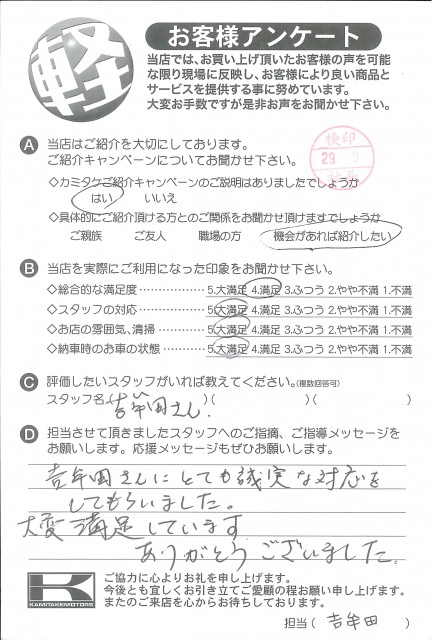 軽
お客様アンケート
当店では、お買い上げ頂いたお客様の声を可能
な限り現場に反映し、お客様により良い商品と
サービスを提供する事に努めています。
大変お手数ですが是非お声をお聞かせ下さい。
A 当店はご紹介を大切にしております。
ご紹介キャンペーンについてお聞かせ下さい。
検印
29.
◇カミタケご紹介キャンペーンのご説明はありましたでしょうか
はい いいえ
◇具体的にご紹介頂ける方とのご関係をお聞かせ頂けますでしょうか
ご親族 ご友人 職場の方 機会があれば紹介したい
B 当店を実際にご利用になった印象をお聞かせ下さい。
◇総合的な満足度……………5.大満足 4.満足 3.ふつう 2.やや不満 1.不満
◇スタッフの対応……………5.大満足 4.満足 3.ふつう 2.やや不満 1.不満
◇お店の雰囲気、清掃…………5.大満足 4.満足 3.ふつう 2.やや不満 1.不満
◇納車時のお車の状態…………5.大満足 4.満足 3.ふつう 2.やや不満 1.不満
C 評価したいスタッフがいれば教えてください。(複数回答可)
スタッフ名(吉牟田さん.)( )( )
D 担当させて頂きましたスタッフへのご指摘、ご指導メッセージを
お願いします。応援メッセージもぜひお願いします。
吉牟田さんにとても誠実な対応を
してもらいました。
大変満足しています
ありがとうございました.
K
KAMITAKEMOTORS
ご協力に心よりお礼を申し上げます。
今後とも宜しくお引き立てご愛顧の程お願い申し上げます。
またのご来店を心からお待ちしております。
担当( 吉牟田 )